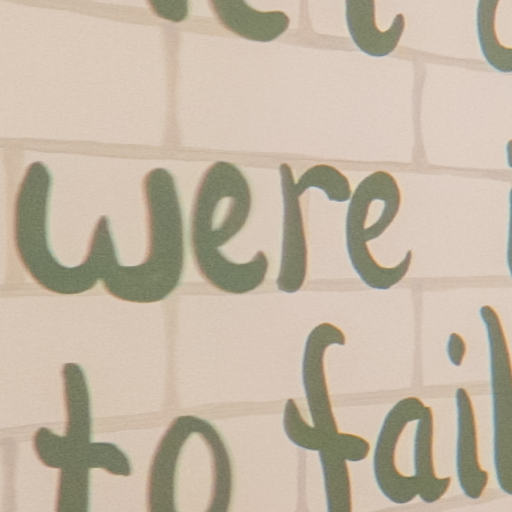 were
to fail